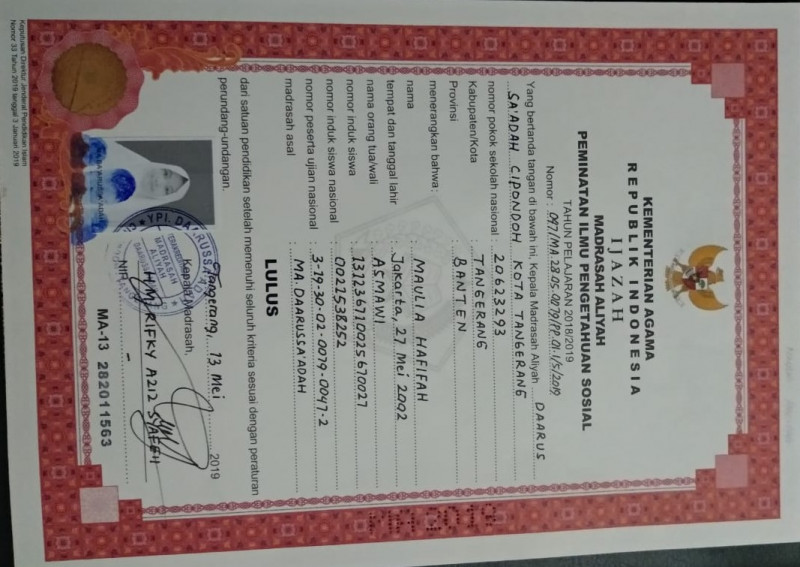 KEMENTERIAN AGAMA
REPUBLIK INDONESIA
IJAZAH
MADRASAH ALIYAH
PEMINATAN ILMU PENGETAHUAN SOSIAL
TAHUN PELAJARAN 2018/2019
Nomor : 097/MA.28.05.0079/PP.01.1/5/2019
Yang bertanda tangan di bawah ini, Kepala Madrasah Aliyah DAARUS
SA'ADAH CIPONDOH KOTA TANGERANG
nomor pokok sekolah nasional : 20623293
Kabupaten/Kota : TANGERANG
Provinsi : BANTEN
menerangkan bahwa:
nama : MAULIA HAFIFAH
tempat dan tanggal lahir : Jakarta, 27 Mei 2002
nama orang tua/wali : ASMAWI
nomor induk siswa : 131236710025670027
nomor induk siswa nasional : 0022538252
nomor peserta ujian nasional : 3-19-30-02-0079-0047-2
madrasah asal : MA. DAARUSSA'ADAH
LULUS
dari satuan pendidikan setelah memenuhi seluruh kriteria sesuai dengan peraturan
perundang-undangan.
Tangerang, 13 Mei 2019
Kepala Madrasah,
YPI. DAARUSSA
MADRASAH
ALIYAH
HM. RIFKY AZIZ SYAFEII
NIP. -
MA-13 282011563
Keputusan Direktur Jenderal Pendidikan Islam
Nomor 33 Tahun 2019 tanggal 3 Januari 2019